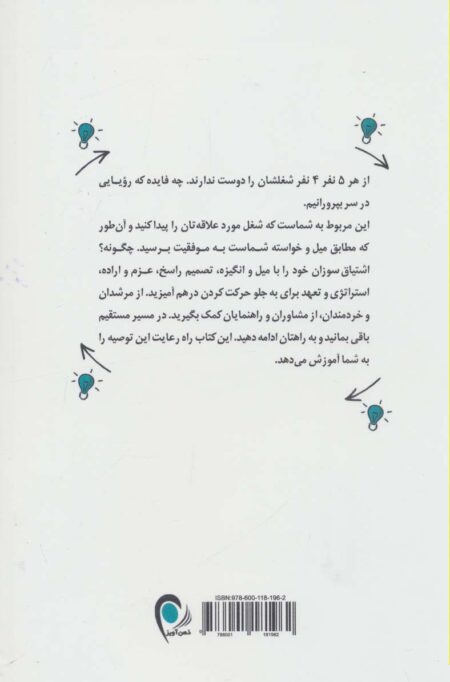 از هر ۵ نفر ۴ نفر شغلشان را دوست ندارند. چه فایده که رؤیـایی
در سر بپرورانیم.
این مربوط به شماست که شغل مورد علاقه‌تان را پیدا کنید و آن‌طور
که مطابق میل و خواسته شماست به موفقیت برسید. چگونه؟
اشتیاق سوزان خود را با میل و انگیزه، تصمیم راسخ، عـزم و اراده،
استراتژی و تعهد برای به جلو حرکت کردن درهم آمیزید. از مرشدان
و خردمندان، از مشاوران و راهنمایان کمک بگیرید. در مسیر مستقیم
باقی بمانید و به راهتان ادامه دهید. این کتاب راه رعایت این توصیه را
به شما آموزش می‌دهد.
ISBN:978-600-118-196-2
ذهن آویز